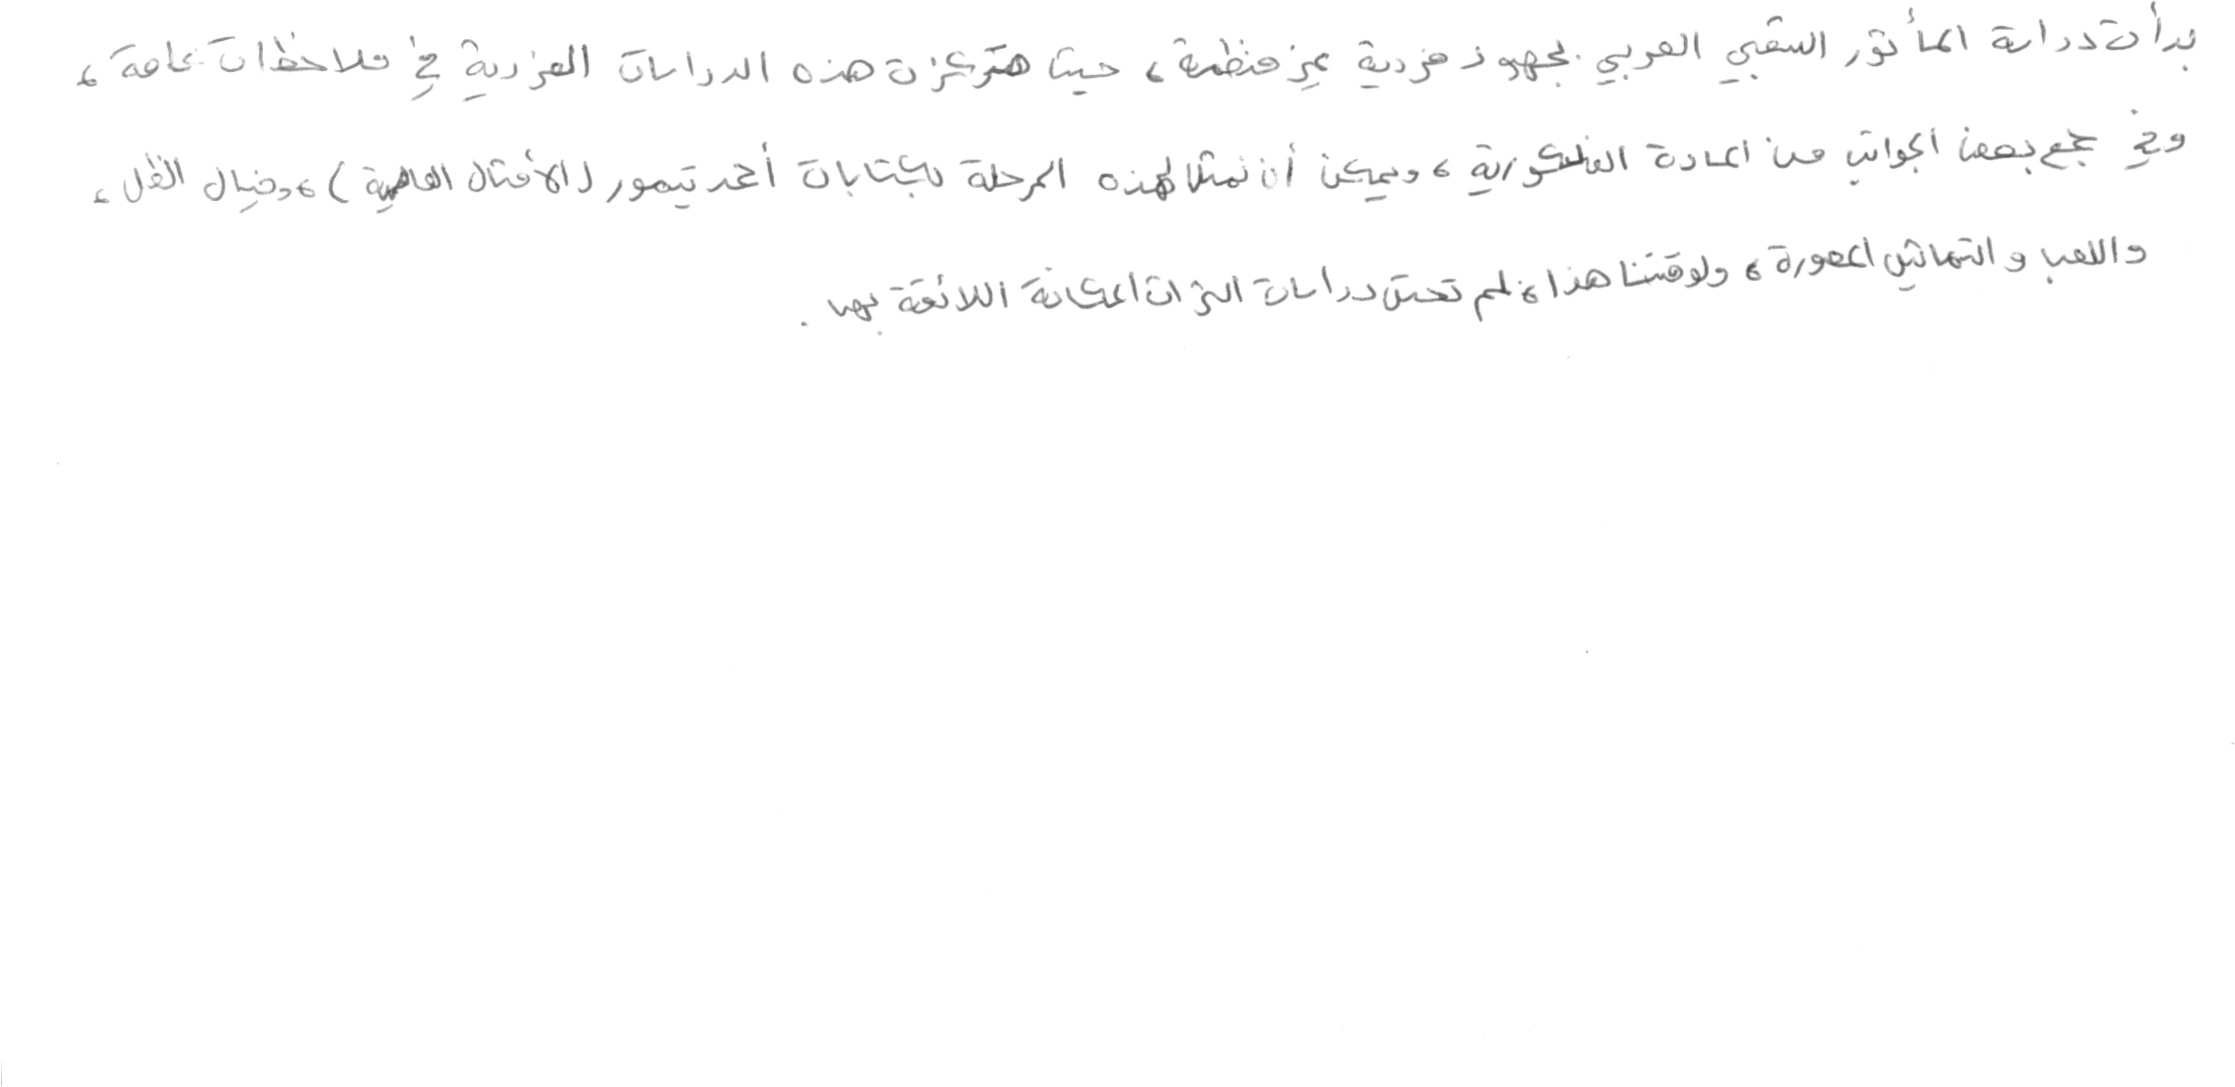 بدأت دراسة المأثور الشعبي العربي بجهود فردية غير منظمة، حيث تركزت هذه الدراسات الفردية في ملاحظات عامة،
وفي جمع بعض الجوانب من المادة الفلكلورية، ويمكن أن نمثل لهذه المرحلة بكتابات أحمد تيمور (الأمثال العامية)، وخيال الظل،
واللعب والتماثيل المصورة، ولوقتنا هذا، لم تحتل دراسات التراث المكانة اللائقة بها.